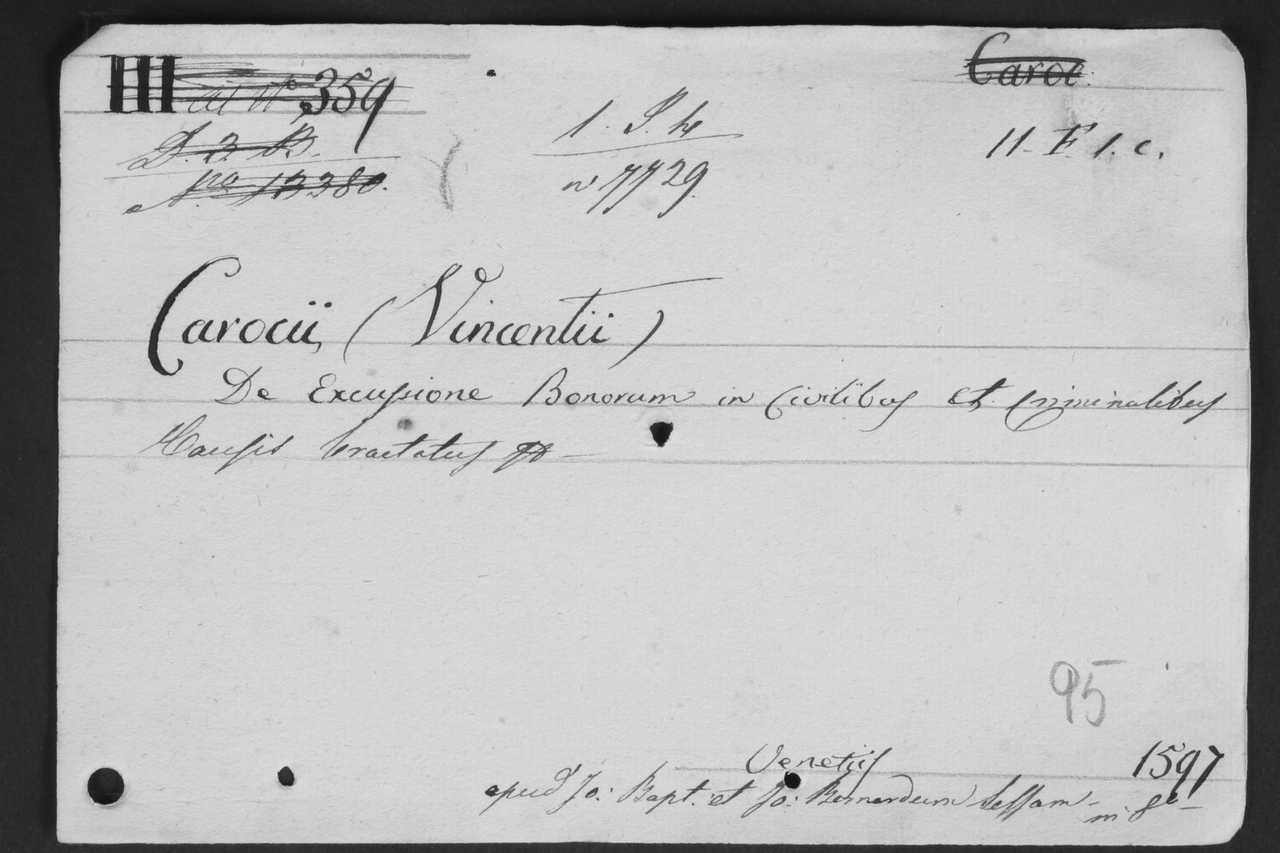 III 359
Caroc.
D. 3. B.
No 13380.
1. S. h
n 7729
11. F. 1. c.
Carocii, (Vincentii)
De Excussione Bonorum in Civilibus et Criminalibus
Causis tractatus
95
Venetiis 1597
apud Jo: Bapt: et Jo: Bernardum Sessam
in 8o